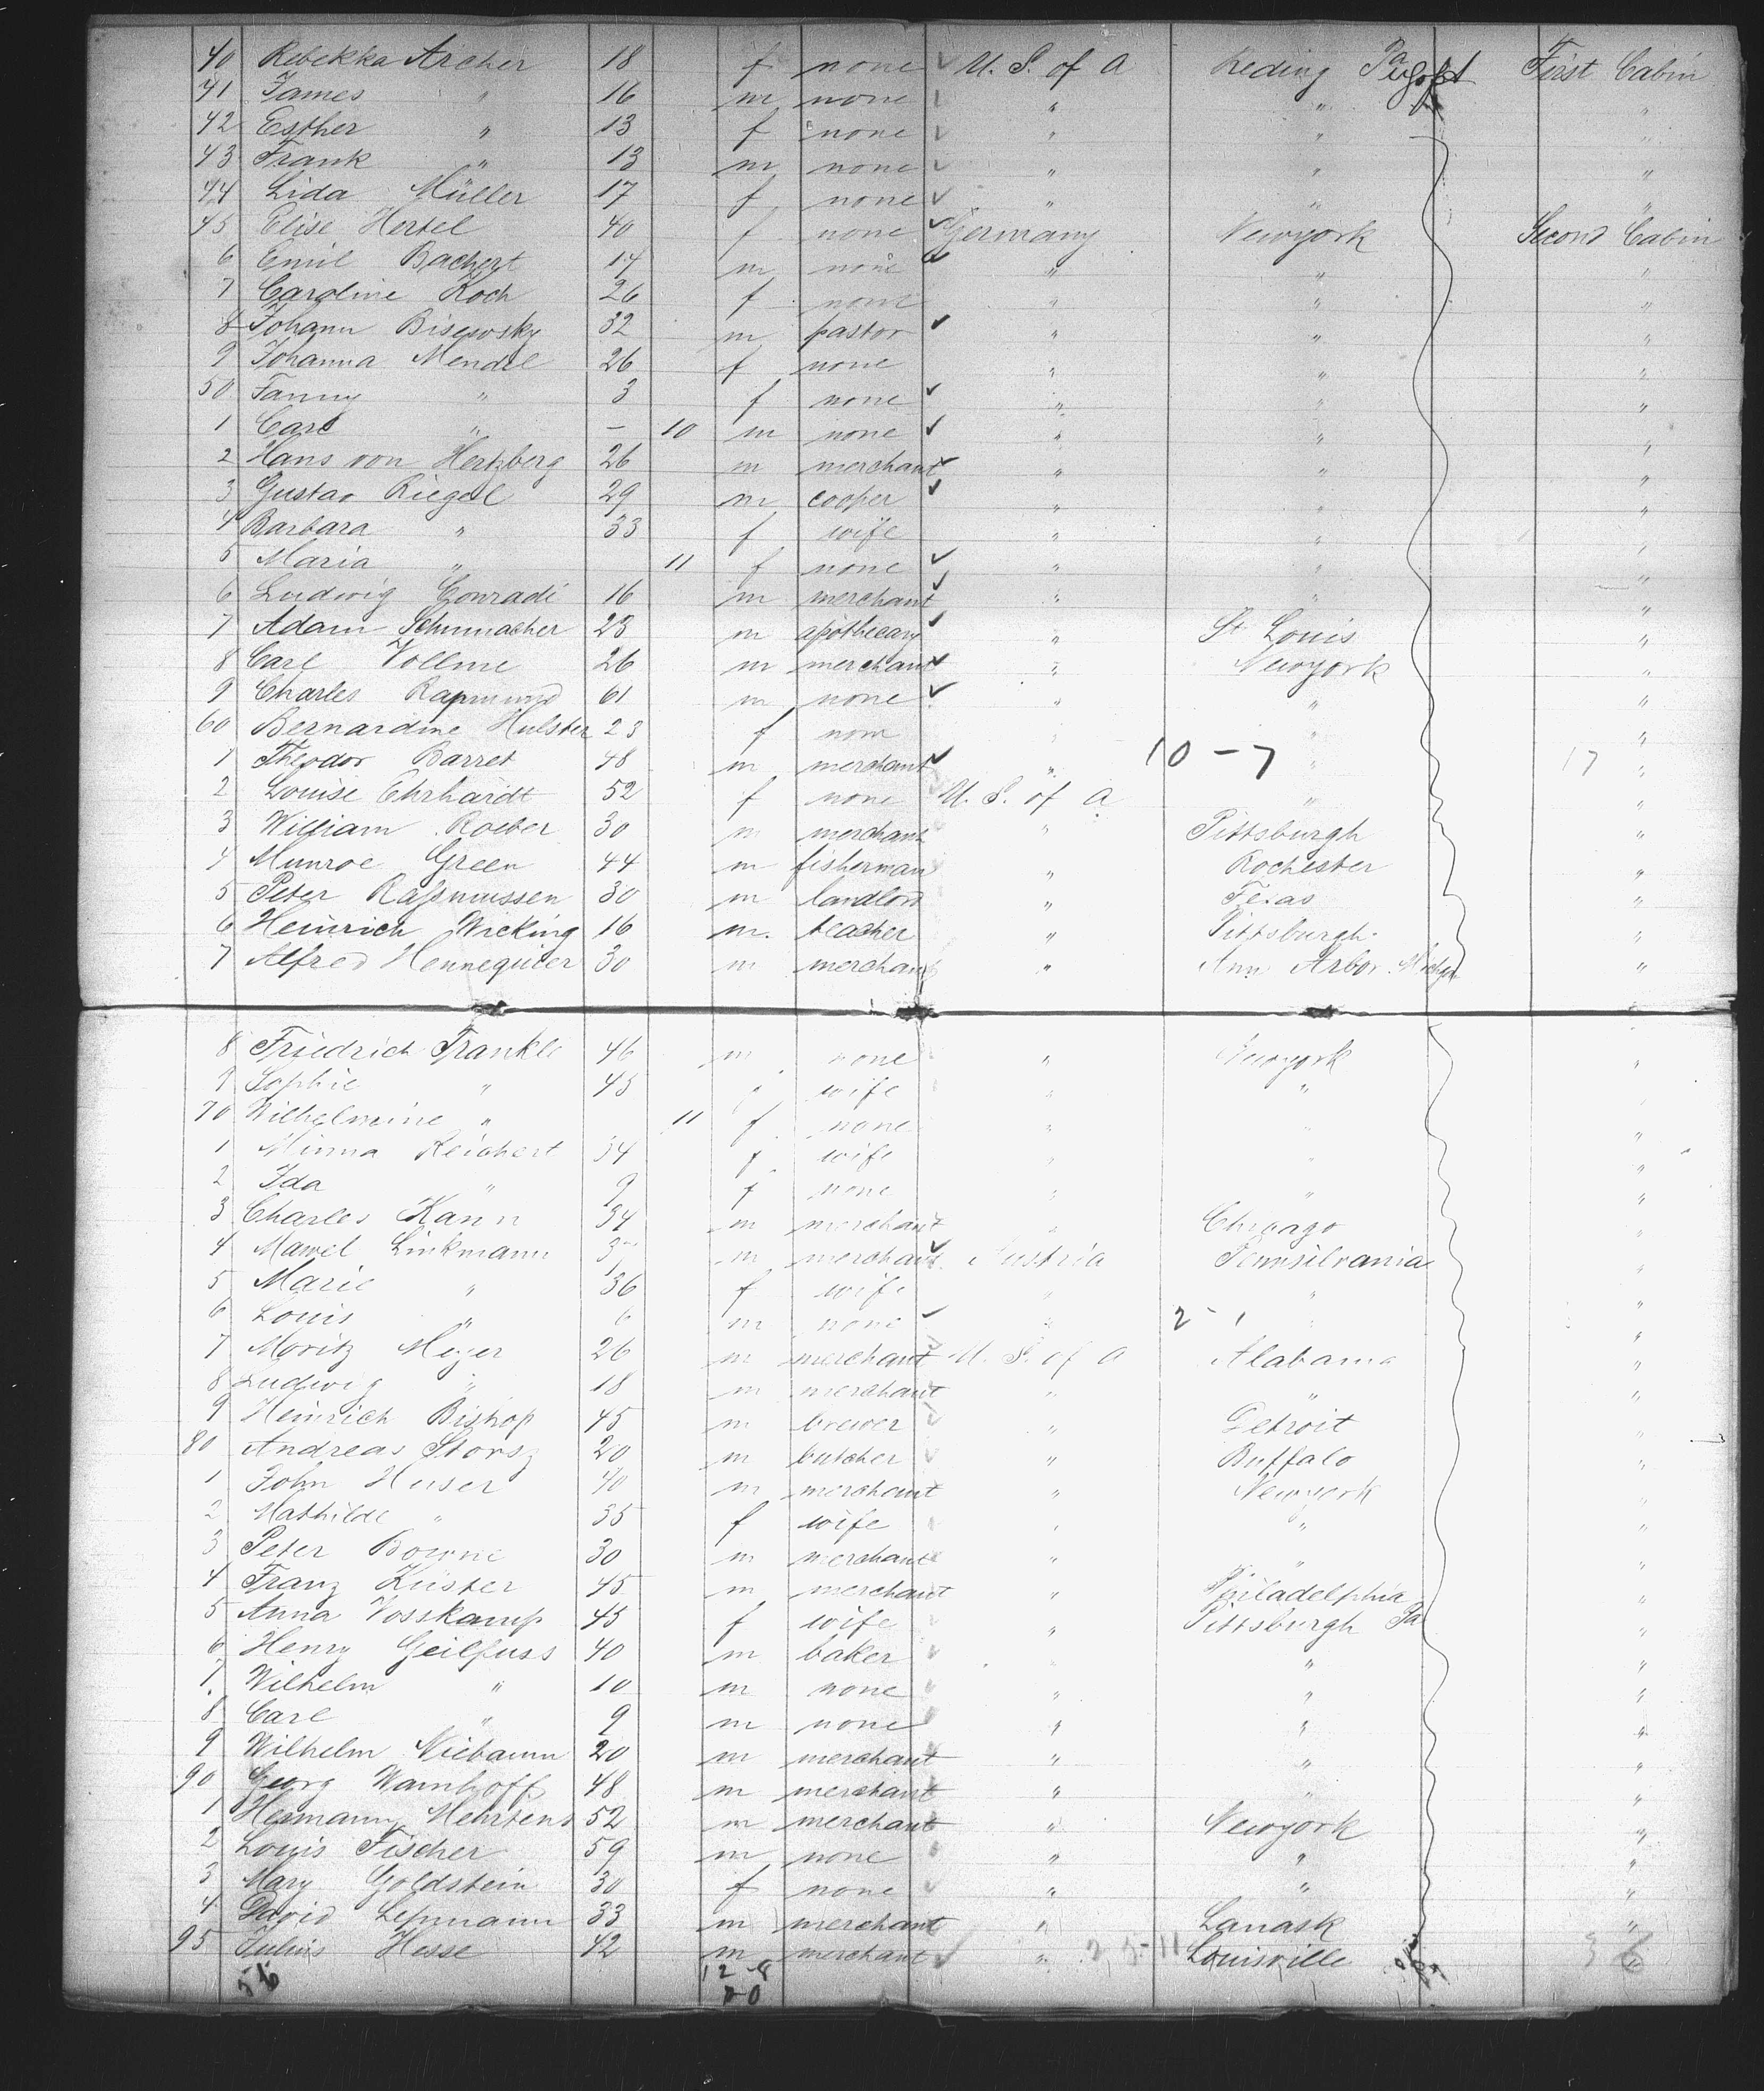 40 Rebekka Archer 18 f none U. S. of A Reding Pa First Cabin
41 James " 16 m none " " "
42 Esther " 13 f none " " "
43 Frank " 13 m none " " "
44 Lida Müller 17 f none " " "
45 Elise Hertel 40 f none Germany Newyork Second Cabin
6 Emil Bachert 14 m none " " "
7 Caroline Koch 26 f none " " "
8 Johann Bisewsky 32 m pastor " " "
9 Johanna Mendel 26 f none " " "
50 Fanny " 3 f none " " "
1 Carl " – 10 m none " " "
2 Hans von Hertzberg 26 m merchant " " "
3 Gustav Riegel 29 m cooper " " "
4 Barbara " 33 f wife " " "
5 Maria " 11 f none " " "
6 Ludwig Conradi 16 m merchant " " "
7 Adam Schumacher 23 m apothecary " St. Louis "
8 Carl Vollme 26 m merchant " Newyork "
9 Charles Rapmund 61 m none " " "
60 Bernardine Hulster 23 f none " " "
1 Theodor Barret 48 m merchant " 10 – 7 " 17 "
2 Louise Ehrhardt 52 f none U. S. of A " "
3 William Roeber 30 m merchant " Pittsburgh "
4 Munroe Green 44 m fisherman " Rochester "
5 Peter Rassmussen 30 m landlord " Texas "
6 Heinrich Wicking 16 m. teacher " Pittsburgh "
7 Alfred Hennequier 30 m merchant " Ann Arbor "
8 Friedrich Frankle 46 m none " Newyork "
9 Sophie " 45 " wife " " "
70 Wilhelmine " 11 f none " " "
1 Minna Reichert 34 f wife " " "
2 Ida " 9 f none " " "
3 Charles Kann 34 m merchant " Chicago "
4 Linkmann m merchant Austria Pennsilvania "
5 Marie " 36 f wife " " "
6 Louis " 6 m none " 2 - 1 " "
7 Moritz Meyer 26 m merchant U. S. of A Alabama "
8 Ludwig " 18 m merchant " " "
9 Heinrich Bishop 45 m brewer " Detroit "
80 Andreas Storsz 20 m butcher " Buffalo "
1 John Heuser 40 m merchant " Newyork "
2 Mathilde " 35 f wife " " "
3 Peter Bowne 30 m merchant " " "
4 Franz Küster 45 m merchant " Philadelphia "
5 Anna Vosskamp 45 f wife " Pittsburgh Pa "
6 Henry Geilfuss 40 m baker " " "
7 Wilhelm " 10 m none " " "
8 Carl " 9 m none " " "
9 Wilhelm Niebaum 20 m merchant " " "
90 Georg Wamhoff 48 m merchant " " "
1 Hermann Mehrtens 52 m merchant " Newyork "
2 Louis Fischer 59 m none " " "
3 Mary Goldstein 30 f none " " "
4 David Lepmann 33 m merchant " Lanask "
95 Julius Hesse 42 m merchant " Louisville "
56 12 - 8
20